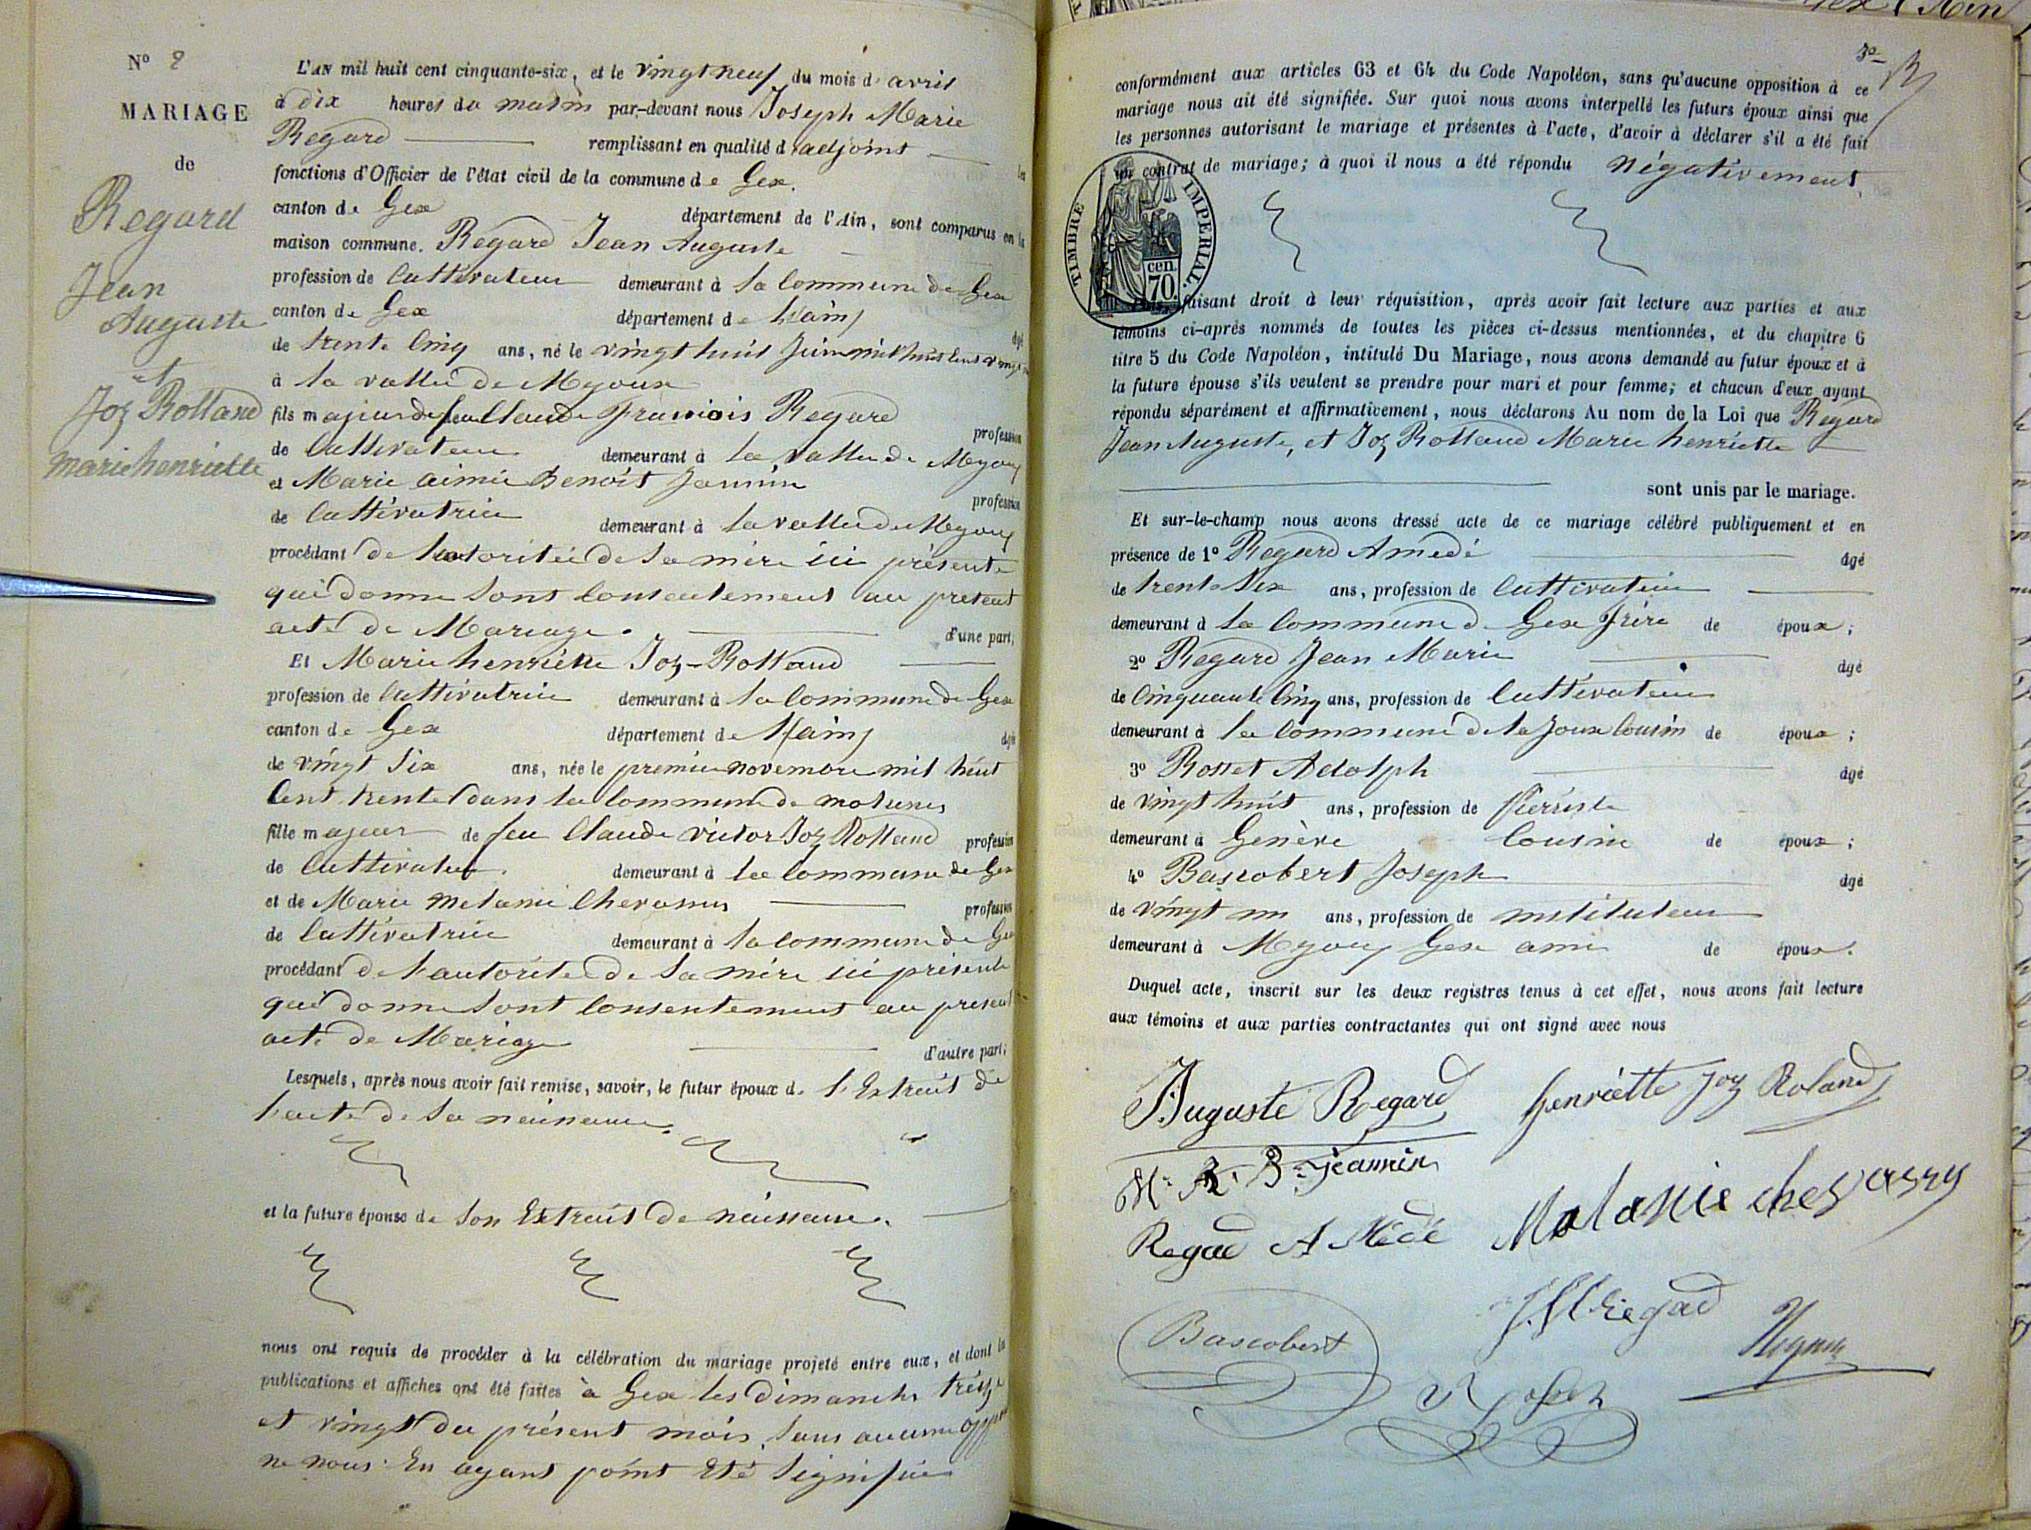 Nº 8
MARIAGE
de
Regard
Jean
Auguste
et
Joz Rolland
marie henriette
L'AN mil huit cent cinquante-six, et le vingt neuf du mois d'avril
à dix heures du matin par-devant nous Joseph Marie
Regard remplissant en qualité d'adjoint les
fonctions d'Officier de l'état civil de la commune de Gex.
canton de Gex département de l'Ain, sont comparus en la
maison commune. Regard Jean Auguste
profession de Cultivateur demeurant à la Commune de Gex
canton de Gex département de l'ain, âgé
de trente Cinq ans, né le vingt huit Juin mil huit Cent vingt
à la vallée de Myoux
fils majeur de feu Claude François Regard profession
de Cultivateur demeurant à la vallée de Myoux
et Marie aimée Benoit Jannin profession
de Cultivatrice demeurant à la vallée de Myoux
procédant de l'autoritée de Sa mère ici présente
qui donne Sont Consentement au présent
acte de Mariage. d'une part,
Et Marie henriette Joz-Rolland
profession de Cultivatrice demeurant à la Commune de Gex
canton de Gex département de l'ain, âgée
de vingt Six ans, née le premier novembre mil huit
Cent trente dans la Commune de molunes
fille majeur de feu Claude victor Joz Rolland profession
de Cultivateur. demeurant à la Commune de Gex
et de Marie melanie Chevassus profession
de Cultivatrice demeurant à la Commune de Gex
procédant de l'autoritée de Sa mère ici présente
qui donne Sont Consentement au présent
acte de Mariage d'autre part;
Lesquels, après nous avoir fait remise, savoir, le futur époux de l'Extrait de
l'acte de Sa naissance.
et la future épouse de Son Extrait de naissance.
nous ont requis de procéder à la célébration du mariage projeté entre eux, et dont les
publications et affiches ont été faites à Gex les Dimanches treize
et vingt du présent mois, Sans aucune oppo
ne nous En ayant point Eté Signifiée
conformément aux articles 63 et 64 du Code Napoléon, sans qu'aucune opposition à ce
mariage nous ait été signifiée. Sur quoi nous avons interpellé les futurs époux ainsi que
les personnes autorisant le mariage et présentes à l'acte, d'avoir à déclarer s'il a été fait
un contrat de mariage; à quoi il nous a été répondu Négativement.
TIMBRE IMPERIAL
70 cen.
faisant droit à leur réquisition, après avoir fait lecture aux parties et aux
témoins ci-après nommés de toutes les pièces ci-dessus mentionnées, et du chapitre 6
titre 5 du Code Napoléon, intitulé Du Mariage, nous avons demandé au futur époux et à
la future épouse s'ils veulent se prendre pour mari et pour femme; et chacun d'eux ayant
répondu séparément et affirmativement, nous déclarons Au nom de la Loi que Regard
Jean Auguste, et Joz Rolland Marie henriette
sont unis par le mariage.
Et sur-le-champ nous avons dressé acte de ce mariage célébré publiquement et en
présence de 1º Regard Amedé âgé
de trente Six ans, profession de Cultivateur
demeurant à la Commune de Gex frère de époux;
2º Regard Jean Marie âgé
de Cinquante Cinq ans, profession de Cultivateur
demeurant à la Commune de la Joux Cousin de époux;
3º Rosset Adolph âgé
de vingt huit ans, profession de Pierriste
demeurant à Genève Cousin de époux;
4º Bascobert Joseph âgé
de vingt un ans, profession de instituteur
demeurant à Myoux Gex ami de époux.
Duquel acte, inscrit sur les deux registres tenus à cet effet, nous avons fait lecture
aux témoins et aux parties contractantes qui ont signé avec nous
Auguste Regard henriette Joz Roland
M. A. B. jeannin
Melanie chevassus
Regad Amédé
J.M. regad
Bascobert